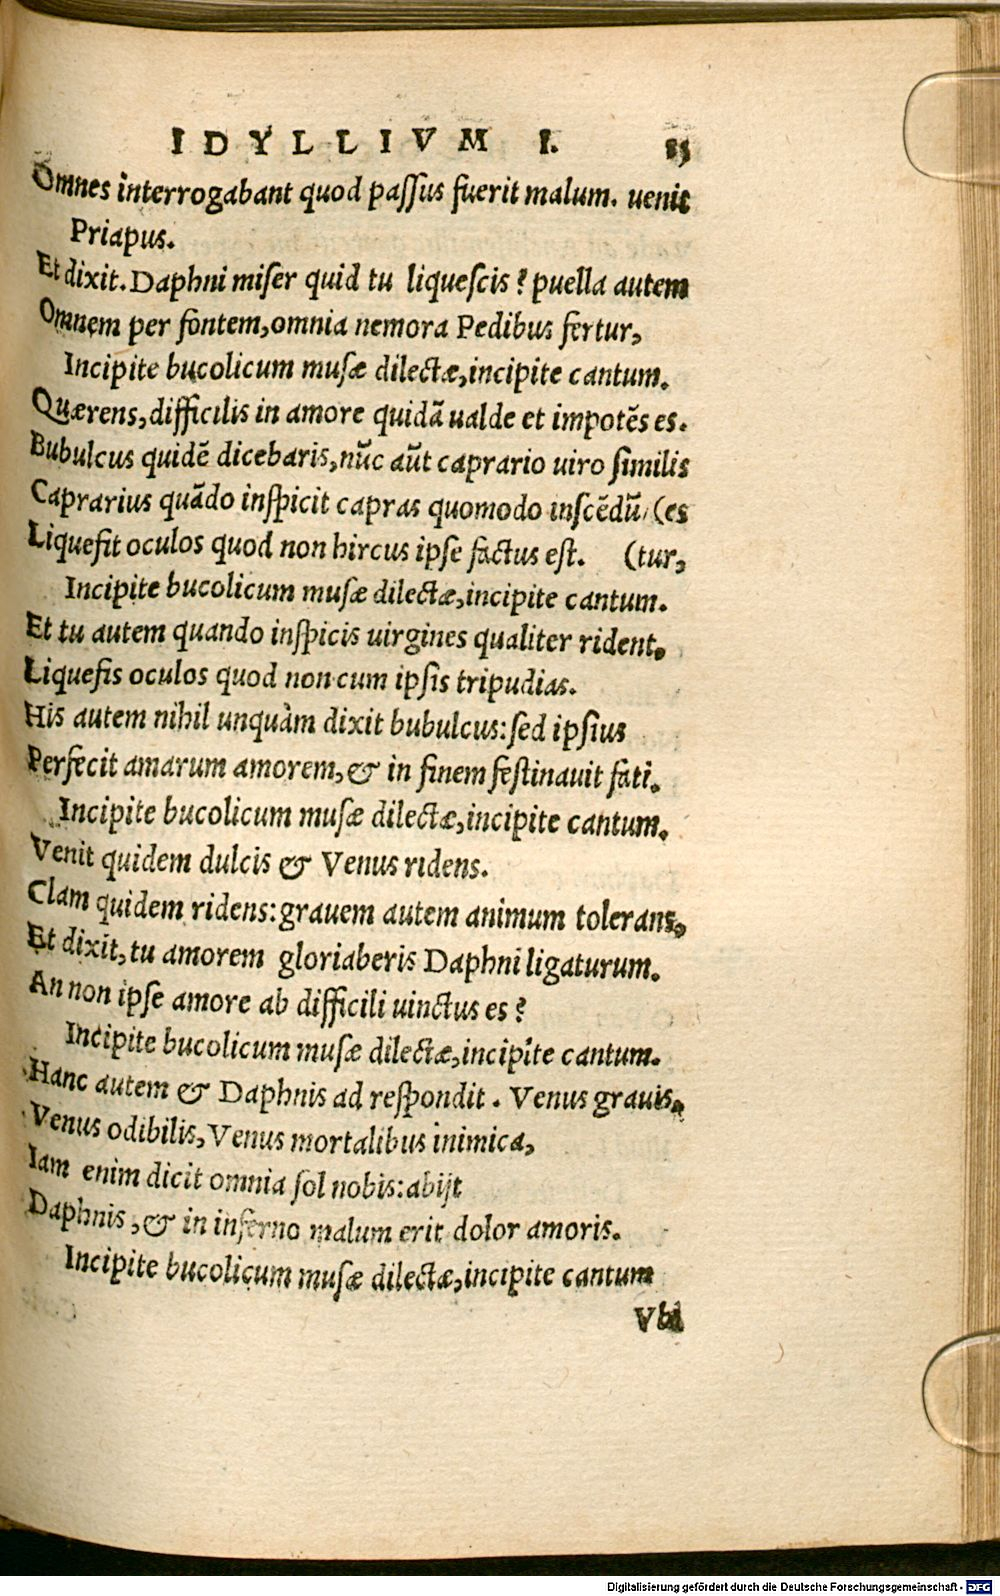 IDYLLIVM I. 15
Omnes interrogabant quod paſſus fuerit malum. uenit
Priapus.
Et dixit. Daphni miſer quid tu liqueſcis? puella autem
Omnem per fontem, omnia nemora Pedibus fertur,
Incipite bucolicum muſæ dilectæ, incipite cantum.
Quærens, difficilis in amore quidā ualde et impotēs es.
Bubulcus quidē dicebaris, nūc aūt caprario uiro ſimilis
Caprarius quādo inſpicit capras quomodo inſcēdū, (es
Liquefit oculos quod non hircus ipſe factus eſt. (tur,
Incipite bucolicum muſæ dilectæ, incipite cantum.
Et tu autem quando inſpicis uirgines qualiter rident.
Liquefis oculos quod non cum ipſis tripudias.
His autem nihil unquàm dixit bubulcus: ſed ipſius
Perfecit amarum amorem, & in finem feſtinauit fati.
Incipite bucolicum muſæ dilectæ, incipite cantum.
Venit quidem dulcis & Venus ridens.
Clam quidem ridens: grauem autem animum tolerans.
Et dixit, tu amorem gloriaberis Daphni ligaturum.
An non ipſe amore ab difficili uinctus es?
Incipite bucolicum muſæ dilectæ, incipite cantum.
Hanc autem & Daphnis ad reſpondit. Venus grauis.
Venus odibilis, Venus mortalibus inimica,
Iam enim dicit omnia ſol nobis: abijt
Daphnis, & in inferno malum erit dolor amoris.
Incipite bucolicum muſæ dilectæ, incipite cantum
Digitalisierung gefördert durch die Deutsche Forschungsgemeinschaft - DFG